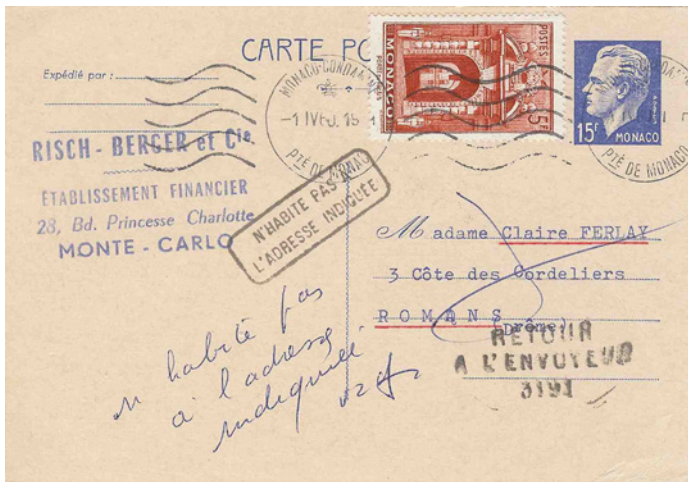 CARTE PO
Expédié par :
RISCH - BERGER et Cie
ÉTABLISSEMENT FINANCIER
28, Bd. Princesse Charlotte
MONTE - CARLO
MONACO-CONDAMINE
-1 IV 60. 15
PTÉ DE MONACO
POSTES
MONACO
5F
15F
MONACO
PTÉ DE MONACO
N'HABITE PAS A
L'ADRESSE INDIQUÉE
Madame Claire FERLAY
3 Côte des Cordeliers
ROMANS
(Drôme)
RETOUR
A L'ENVOYEUR
3191
n habite pas
à l'adresse
indiquée